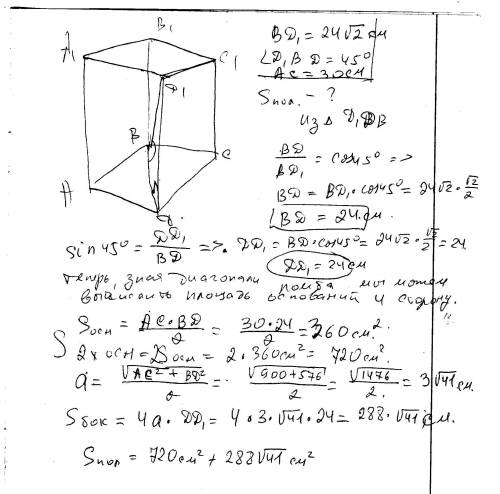 B₁
A₁
C₁
D₁
B
A
C
D
BD₁ = 24√2 см
∠D₁BD = 45°
AC = 30см
Sпол. - ?
из Δ D₁DB
BD/BD₁ = cos45° =>
BD = BD₁·cos45° = 24√2·√2/2
BD = 24 см.
sin45° = DD₁/BD => DD₁ = BD·cos45° = 24√2·√2/2 = 24
DD₁ = 24см
теперь, зная диагонали ромба мы можем
вычислить площадь оснований и сторону.
Sосн = AC·BD/2 = 30·24/2 = 360 см².
S 2х осн = 2Sосн = 2·360см² = 720см².
a = √AC²+BD²/2 = √900+576/2 = √1476/2 = 3√41 см.
Sбок = 4a·DD₁ = 4·3·√41·24 = 288·√41 см.
Sпол = 720см² + 288√41 см²